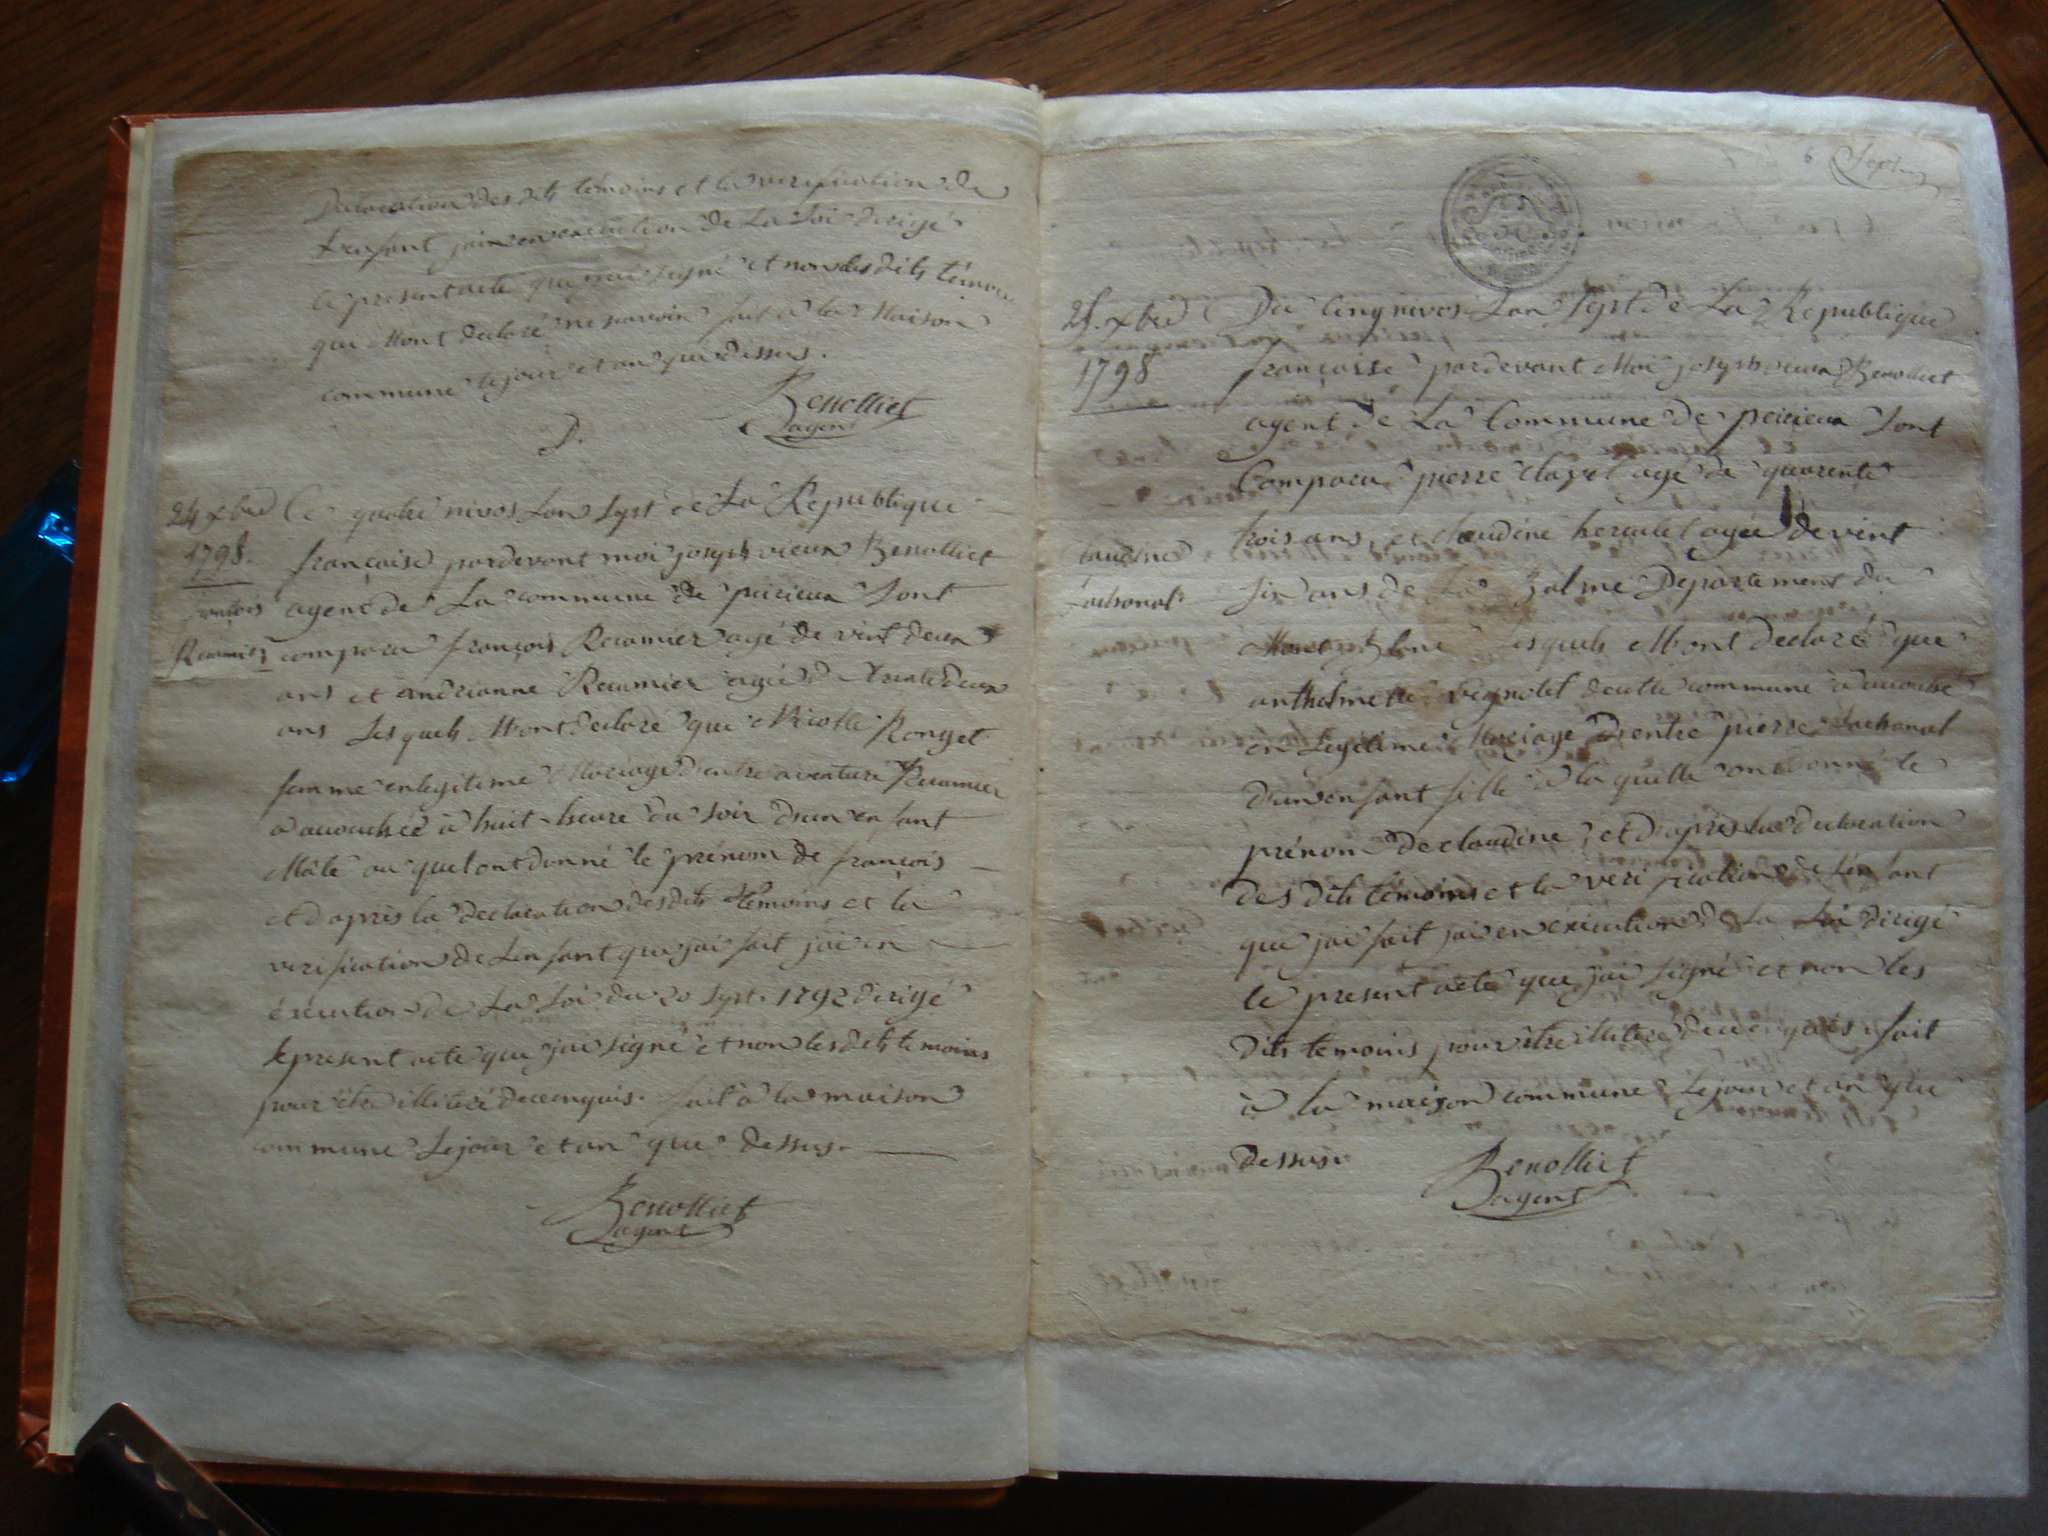 Declaration des dits témoins et la verification de
L'enfant jai en execution de La Loi dirigé
le present acte que j'ai signé et non les dits témoins
qui m'ont declaré ne savoir fait à la Maison
commune le jour et an que dessus.
Benolliet
agent
24 xbre
1798.
françois
Reaumier
Ce quatre nivos Lan sept de La Republique
françaisé pardevant moi joseph vieux Benolliet
agent de La commune de peicieux sont
comparu françois Reaumier agé de vint deux
ans et andrianne Reaumier agée d trente deux
ans Lesquels M'ont declaré que Nicolle Ronget
femme en legitime Mariage d'entre aventure Reaumier
a accouchée à huit heure du soir d'un enfant
Mâle au quel ont donné le prénom de françois
et d'après la declaration des dits témoins et la
verification de Lenfant que jai fait jai en
éxécution de La Loi du 20 Sept. 1792 dirigé
le present acte que jai signé et non les dits témoins
pour être illiteré de ce enquis. fait à la maison
commune Le jour et an que dessus.
Benolliet
agent
6 Sept
25. xbre
1798
Claudine
Lachenal
Du cinq nivos Lan Sept de La Republique
françaisé pardevant Moi joseph vieux Benolliet
agent de La Commune de peicieux Sont
Comparu pierre Clavel agé de quarente
trois ans, et claudine herault agée de vint
six ans de La Balme Departement du
Mont Blanc Lesquels M'ont declaré que
anthelmette deutte commune a accouché
en Legitime Mariage D'entre pierre Lachenal
D'un enfant fille à la quelle on a donné le
prénom de claudine, et d'après la declaration
des dits témoins et la verification de Lenfant
que jai fait jai en éxécution de la Loi dirigé
le present acte que jai signé et non les
dits temoins pour être illiteré de ce enquis. fait
à la maison commune Le jour et an que
dessus.
Benolliet
agent